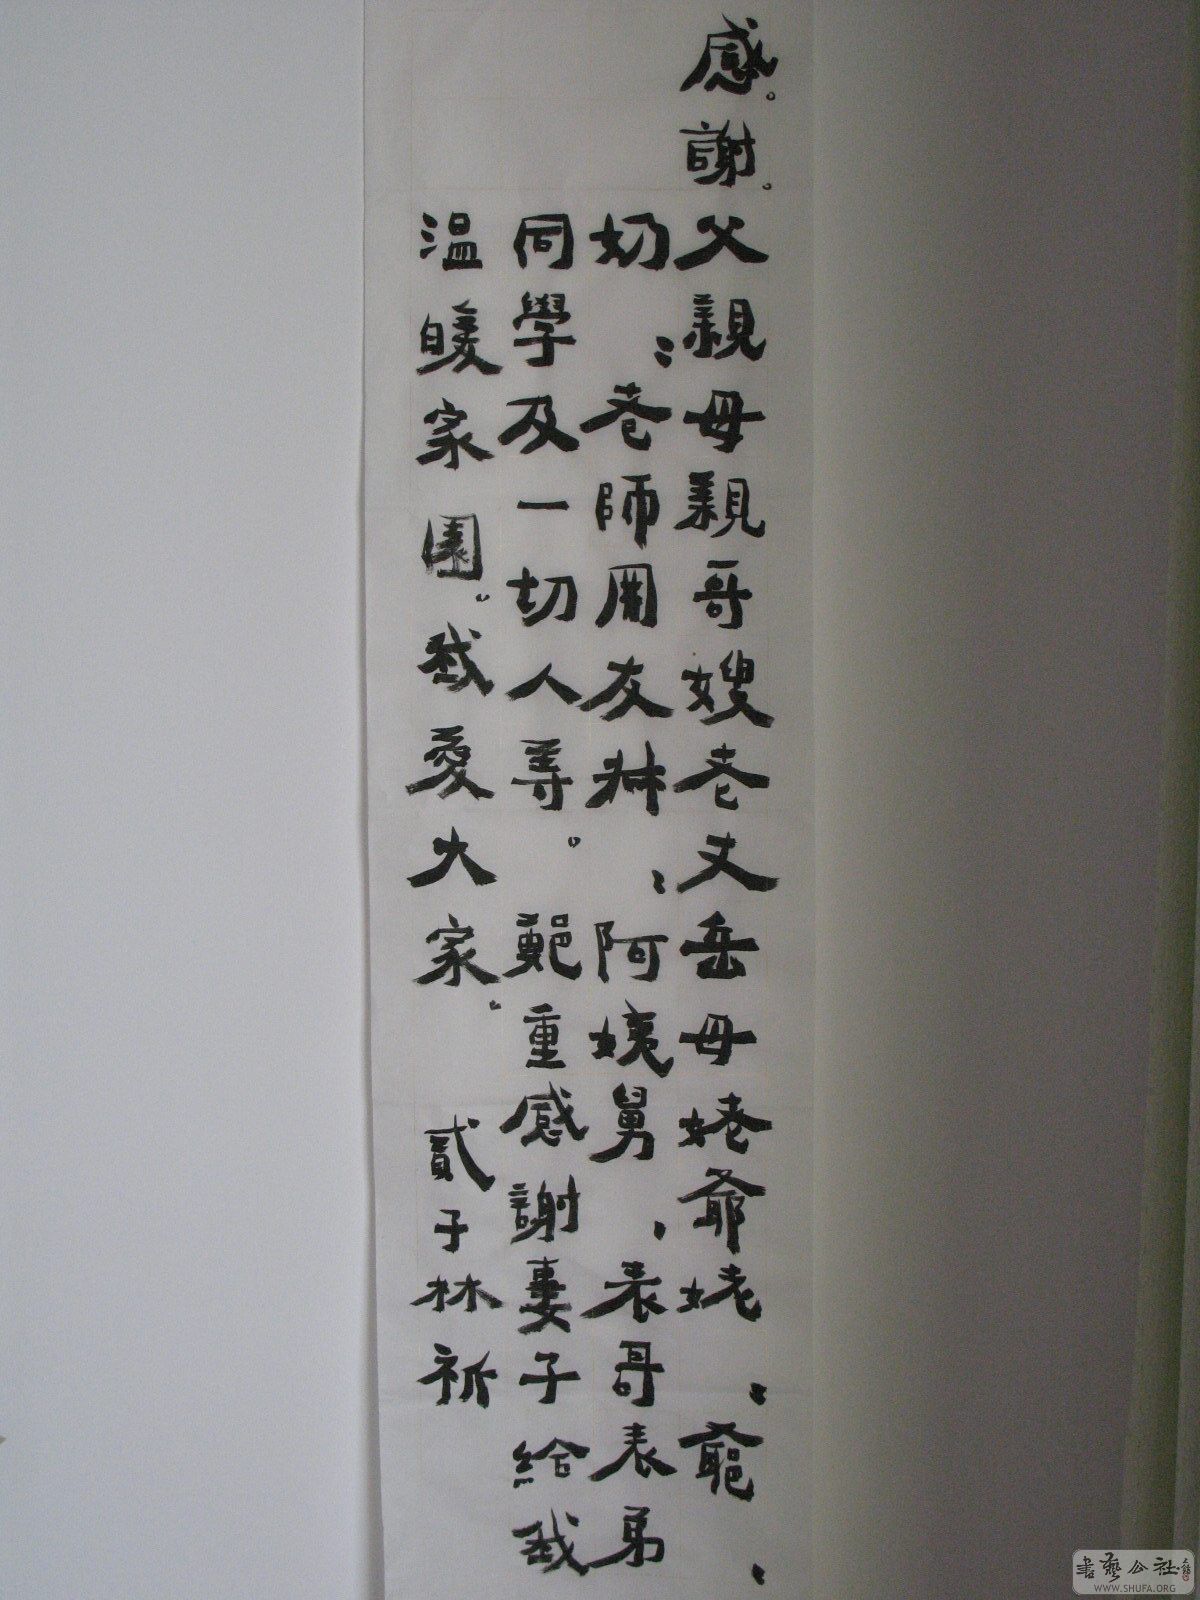 感。謝。父親母親哥嫂老丈岳母姥爺姥〻爺〻
奶〻老師朋友妹〻阿姨舅〻表哥表弟
同學及一切人等。鄭重感謝妻子給我
温暖家園。我愛大家。貳子林祈
書藝公社
WWW.SHUFA.ORG